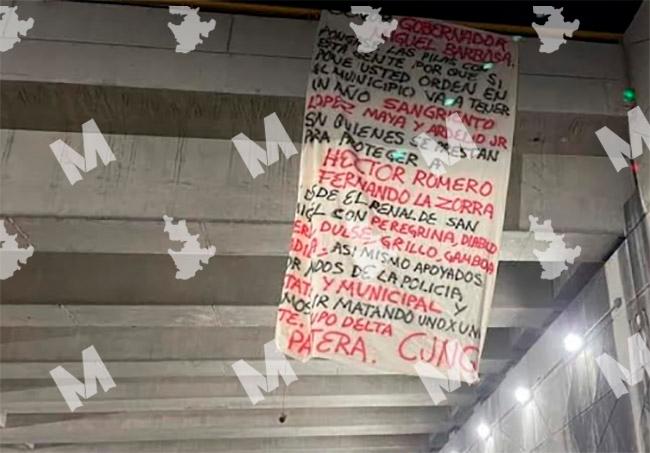 GOBERNADOR
MIGUEL BARBOSA.
LAS PILAS CON
ESTA GENTE PORQUE SI
PONE USTED ORDEN EN
EL MUNICIPIO VA A TENER
UN AÑO SANGRIENTO
LOPEZ MAYA Y ARDELIO JR
SN QUIENES SE PRESTAN
PARA PROTEGER A
HECTOR ROMERO
FERNANDO LA ZORRA
SDE EL PENAL DE SAN
CON PEREGRINA, DIABLO
DULSE, GRILLO, GAMBOA
ASI MISMO APOYADOS
DOS DE LA POLICIA
Y MUNICIPAL Y
MOS IR MATANDO UNO X UN
TE. UPO DELTA
PA ERA. CJNG
M
M
M
M
M
M
M